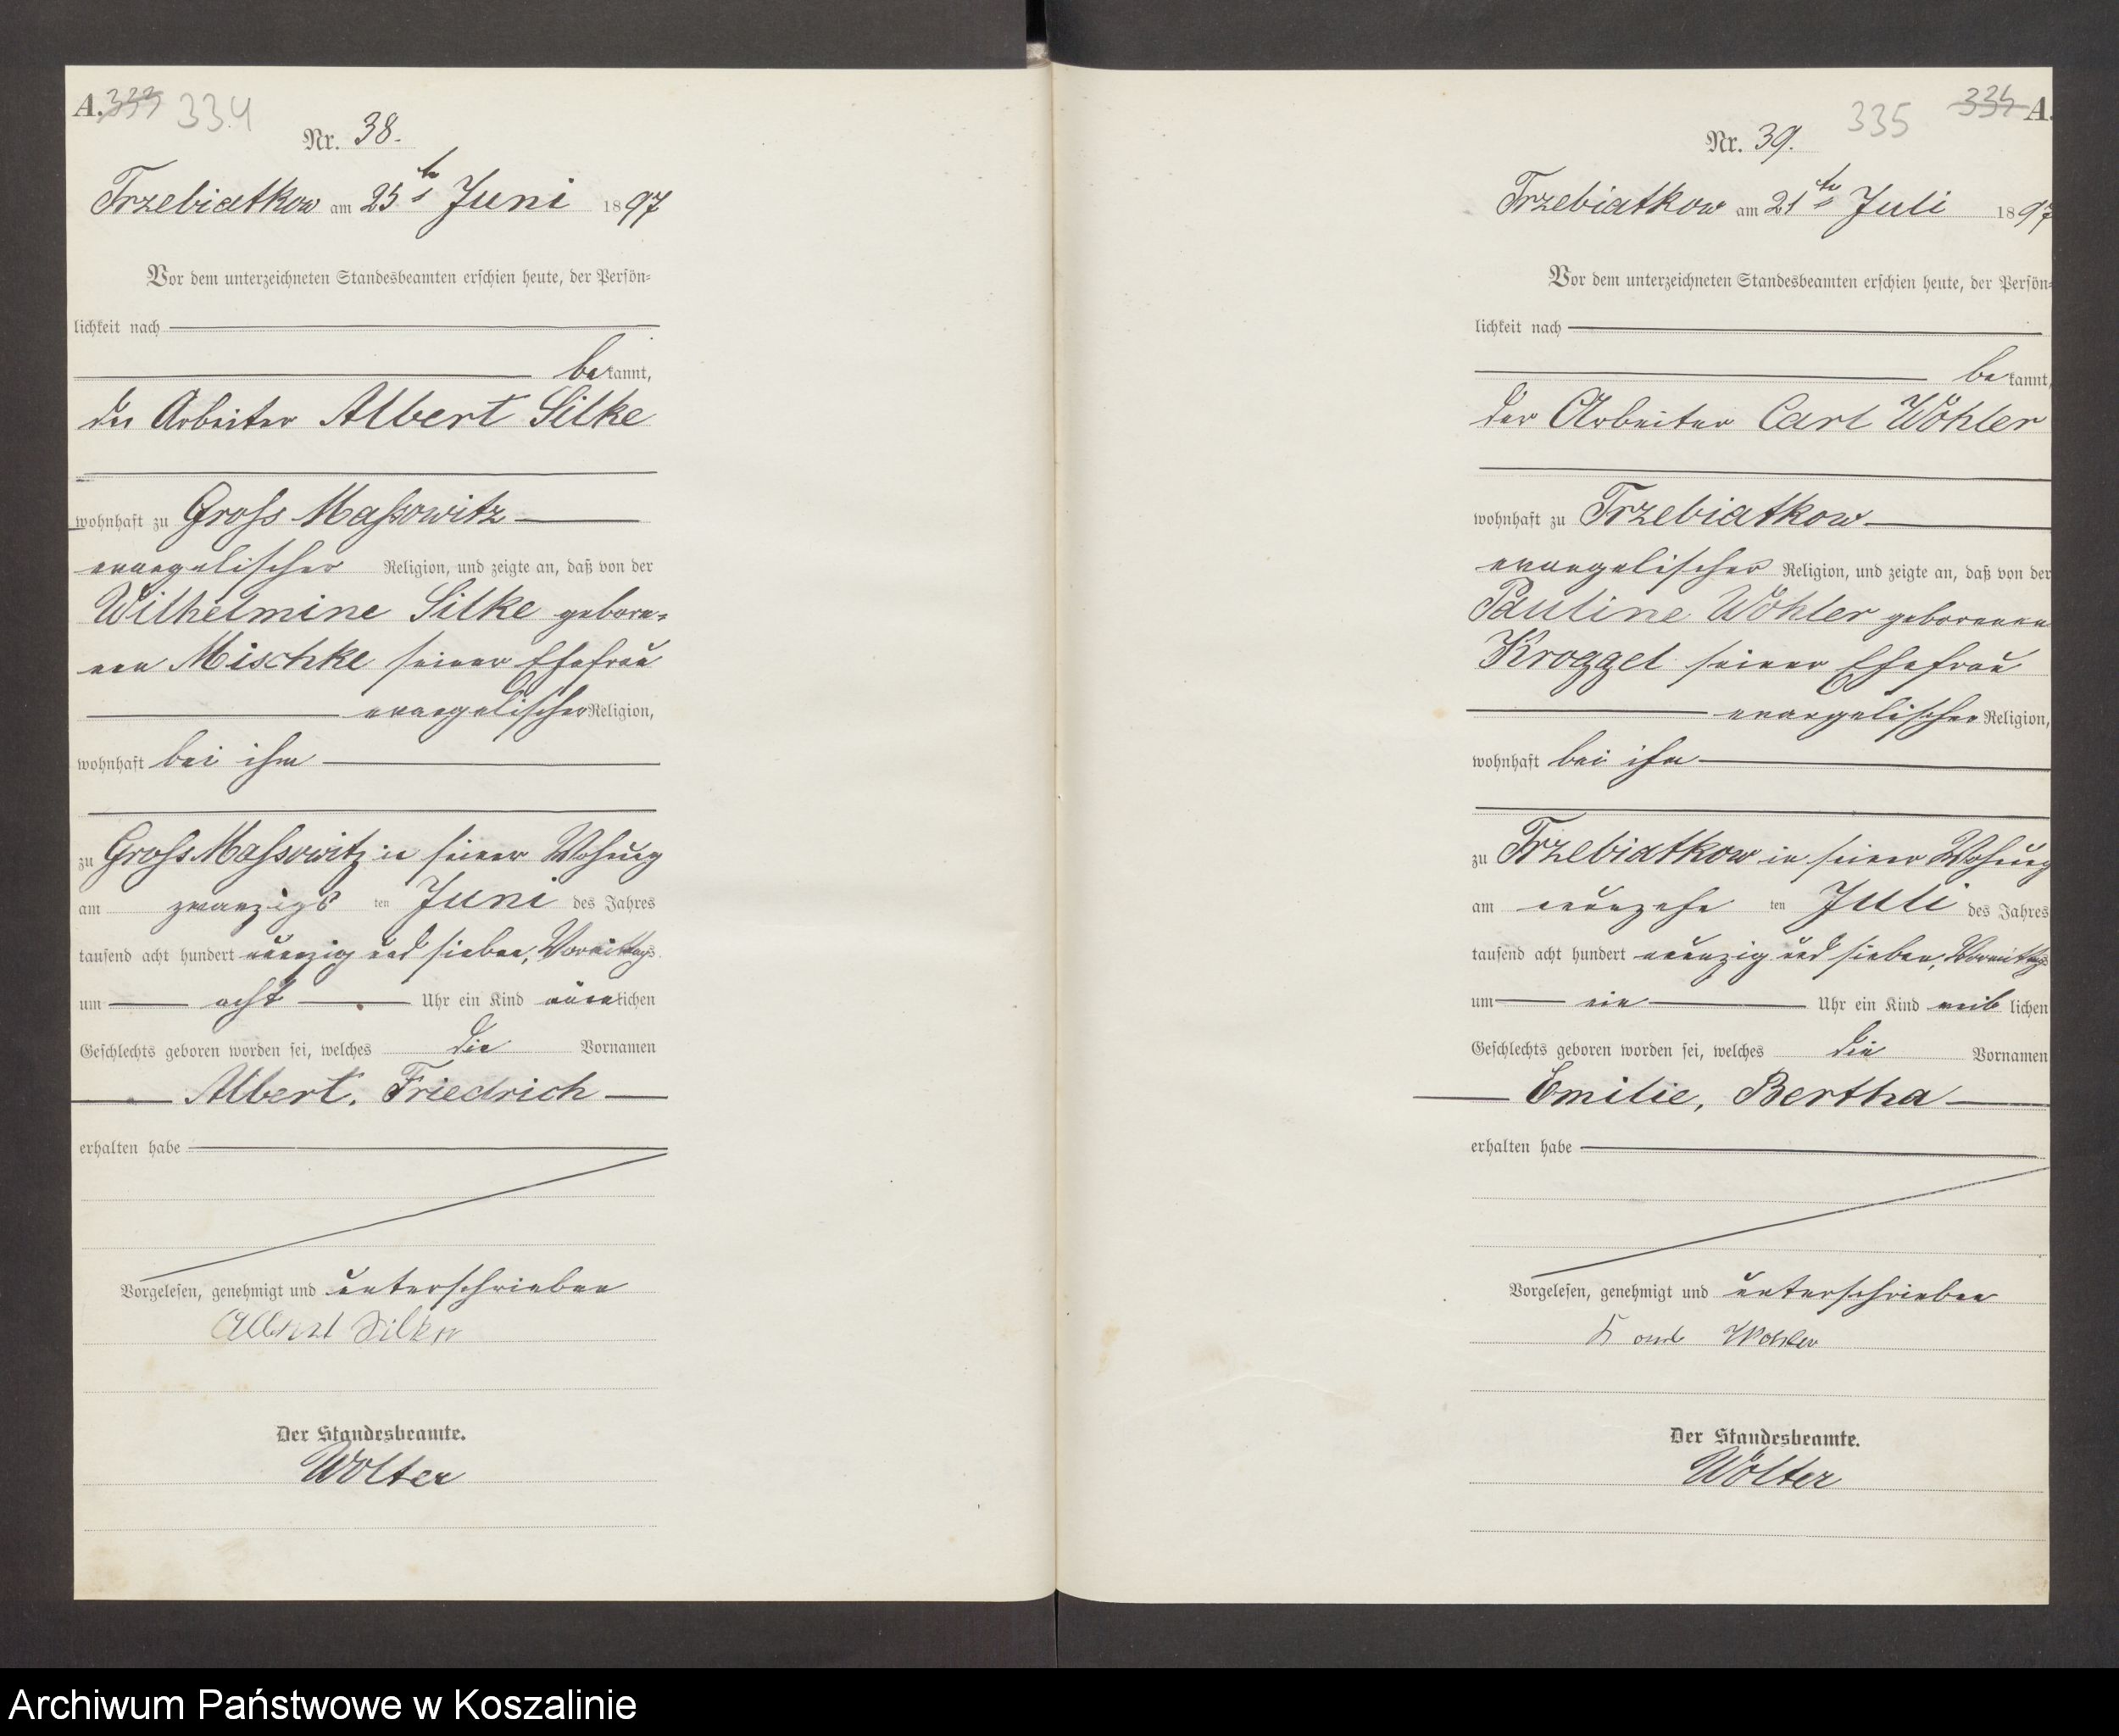 A. 333 334
Nr. 38.
Trzebiatkow am 25ten Juni 1897
Vor dem unterzeichneten Standesbeamten erschien heute, der Persön-
lichkeit nach
bekannt,
der Arbeiter Albert Silke
wohnhaft zu Gross Massowitz
evangelischer Religion, und zeigte an, daß von der
Wilhelmine Silke gebore-
nen Mischke seiner Ehefrau
evangelischer Religion,
wohnhaft bei ihm
zu Gross Massowitz in seiner Wohnung
am zwanzigsten Juni des Jahres
tausend acht hundert neunzig und sieben, Vormittags
um acht Uhr ein Kind männlichen
Geschlechts geboren worden sei, welches die Vornamen
Albert, Friedrich
erhalten habe
Vorgelesen, genehmigt und unterschrieben
Albert Silke
Der Standesbeamte.
Wolter
335 334 A.
Nr. 39.
Trzebiatkow am 21ten Juli 1897
Vor dem unterzeichneten Standesbeamten erschien heute, der Persön-
lichkeit nach
bekannt,
der Arbeiter Carl Wöhler
wohnhaft zu Trzebiatkow
evangelischer Religion, und zeigte an, daß von der
Pauline Wöhler geborenen
Kroggel seiner Ehefrau
evangelischer Religion,
wohnhaft bei ihm
zu Trzebiatkow in seiner Wohnung
am neunzehnten Juli des Jahres
tausend acht hundert neunzig und sieben, Vormittags
um ein Uhr ein Kind weiblichen
Geschlechts geboren worden sei, welches die Vornamen
Emilie, Bertha
erhalten habe
Vorgelesen, genehmigt und unterschrieben
Wohler
Der Standesbeamte.
Wolter
Archiwum Państwowe w Koszalinie